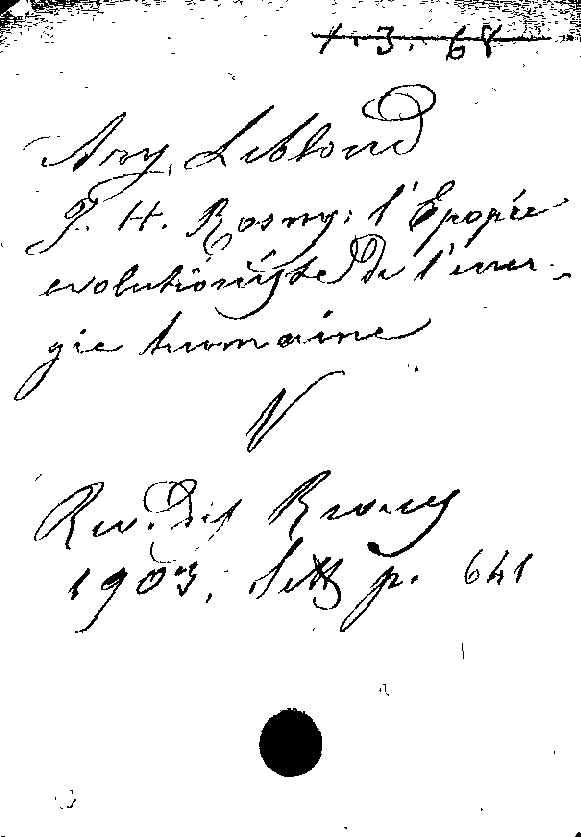 1.3.68
Ary Leblond
J. H. Rosny: l'Épopée
evolutioniste de l'ener-
gie humaine
V
Rev. des Revues
1903, Sett p. 641